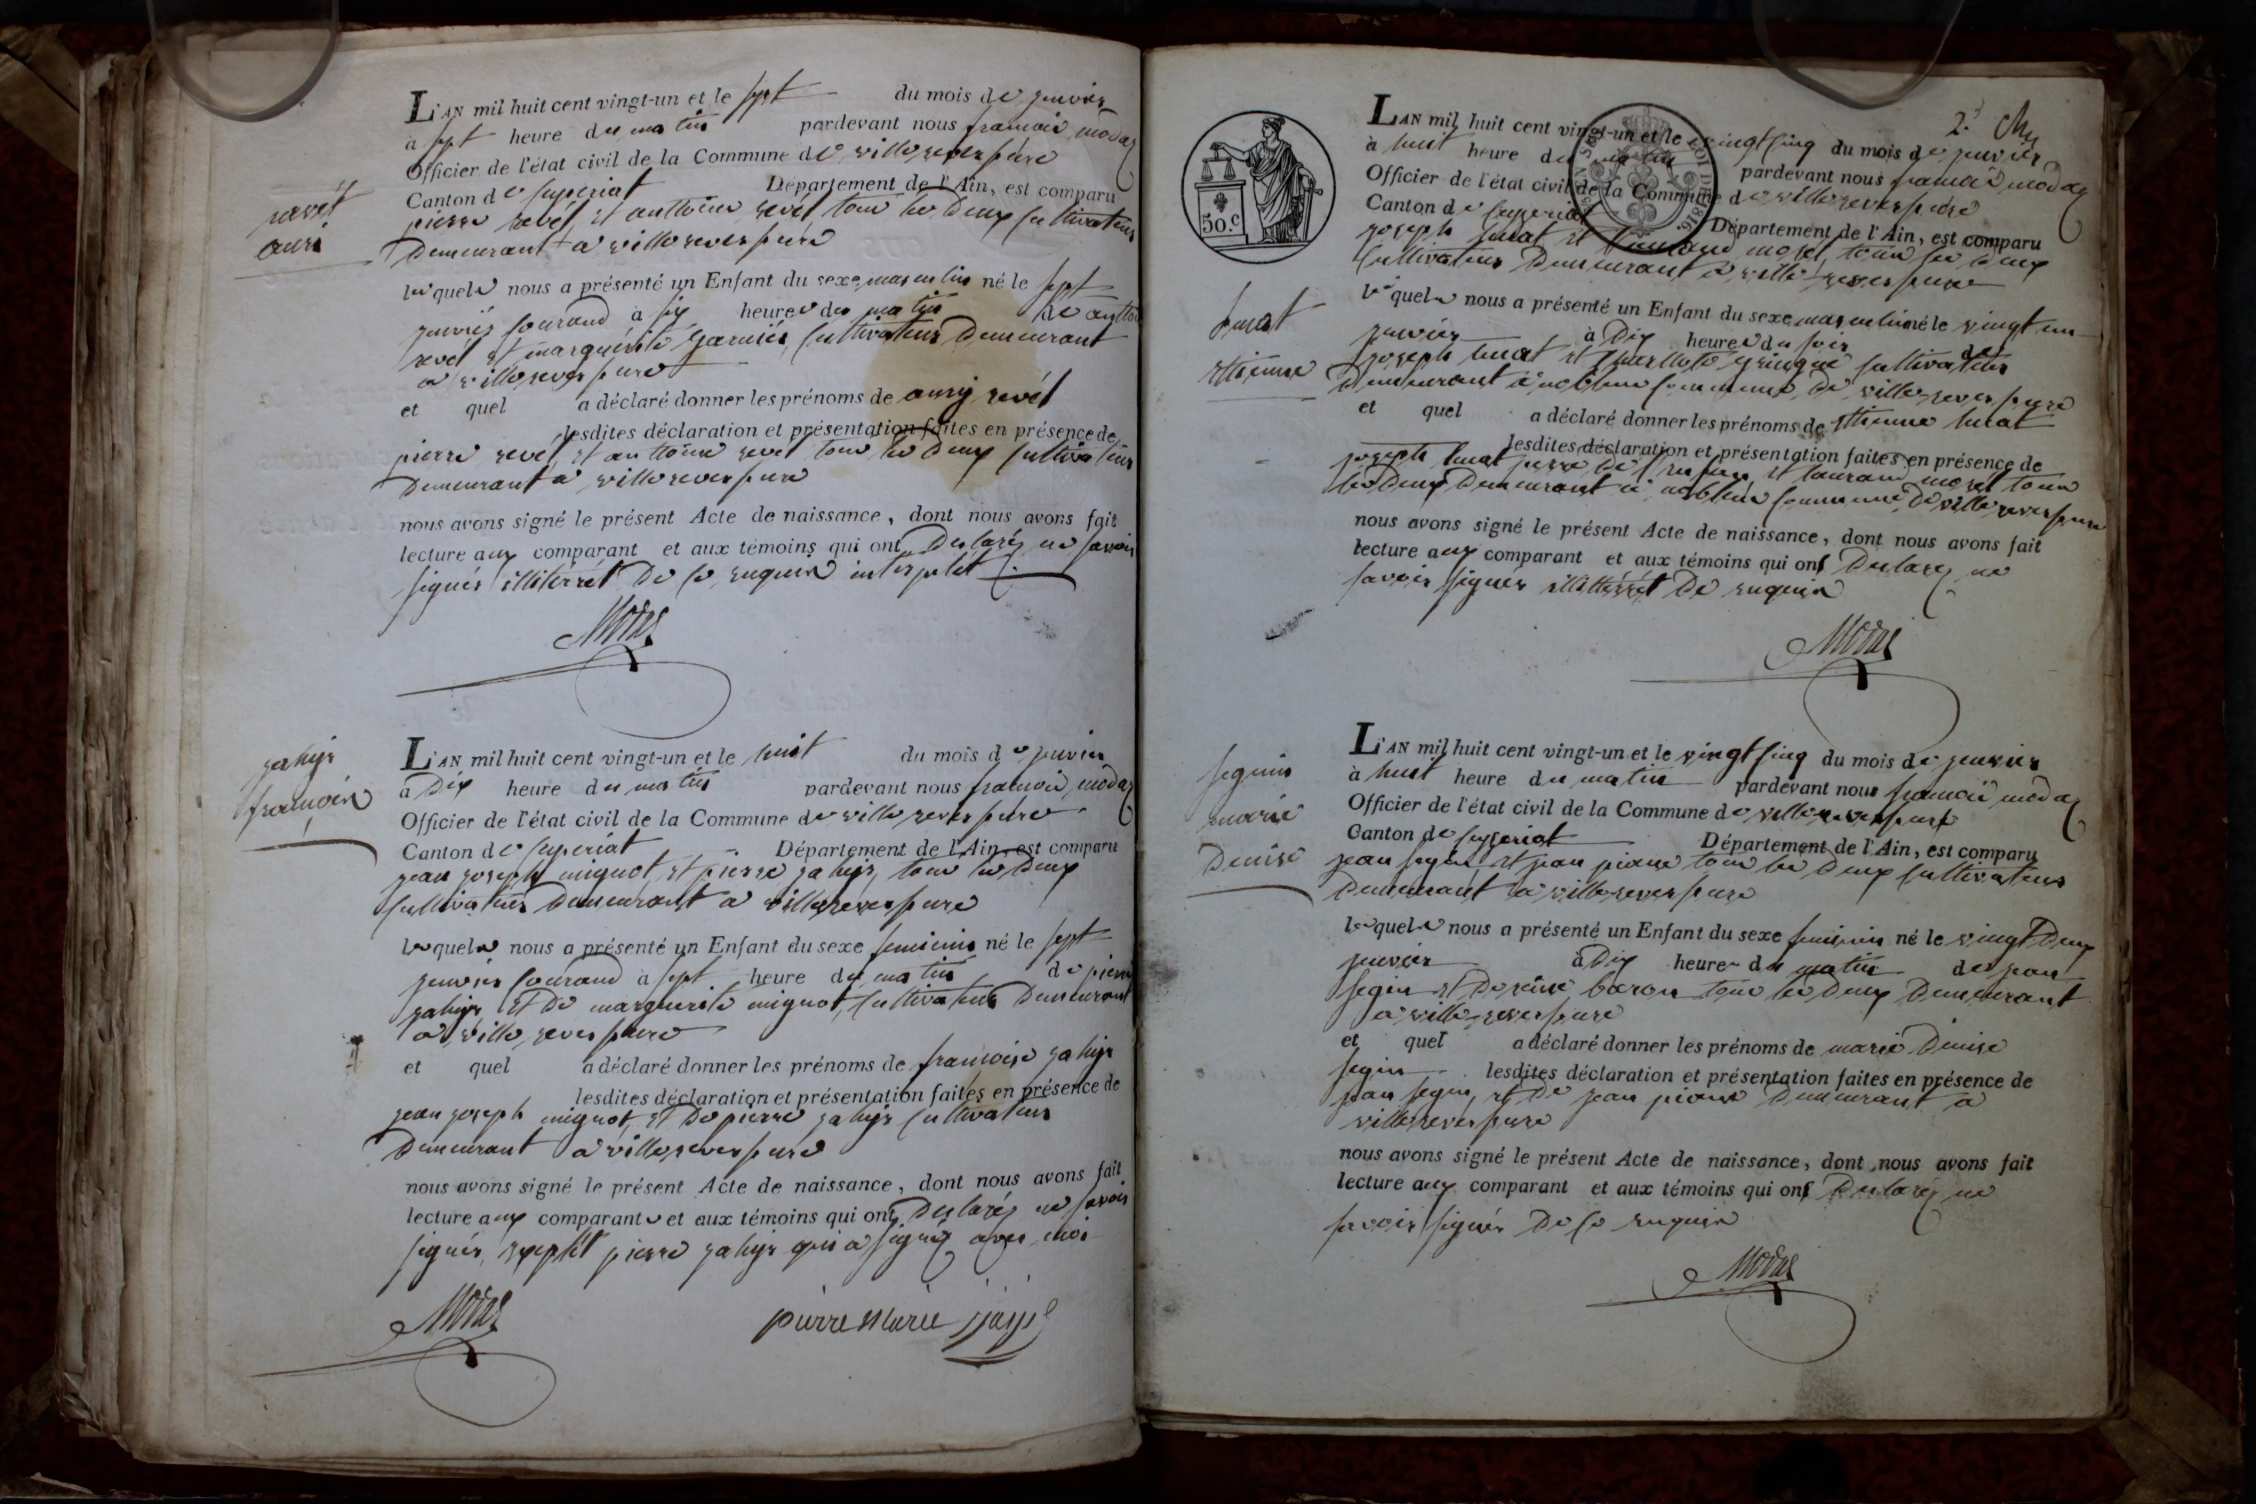 revét
auri
L'AN mil huit cent vingt-un et le sept du mois de janvier
a sept heure du matin pardevant nous francois modas
Officier de l'état civil de la Commune de villereversure
Canton de Ceyzeriat Département de l'Ain, est comparu
pierre revet, et anttoine revet tous les deux Cultivateurs
Demeurant a villereversure
lesquels nous a présenté un Enfant du sexe masculin né le sept
janvier Courand a six heures du matin de antton
revet et marguérite garniér, Cultivateurs Demeurant
a villereversure
et quel a déclaré donner les prénoms de aury revét
lesdites déclaration et présentation faites en présence de
pierre revet, et anttoine revet tous les deux Cultivateurs
Demeurant a villereversure
nous avons signé le présent Acte de naissance, dont nous avons fait
lecture aux comparant et aux témoins qui ont Declaréz ne savoir
signér illitérrét De Ce enquein
Modas
françoise
L'AN mil huit cent vingt-un et le huit du mois de janvier
a Dix heure du matin pardevant nous francois modas
Officier de l'état civil de la Commune de villereversure
Canton de Ceyzeriat Département de l'Ain, est comparu
jean joseph mignot, et pierre tous les Deux
Cultivateurs Demeurant a villereversure
lesquels nous a présenté un Enfant du sexe feminin né le sept
janvier Courand a sept heure du matin de pierre
et De marguerite mignot, Cultivateurs Demeurant
a villereversure
et quel a déclaré donner les prénoms de françoise
lesdites déclaration et présentation faites en présence de
jean joseph mignot, et De pierre Cultivateurs
Demeurant a villereversure
nous avons signé le présent Acte de naissance, dont nous avons fait
lecture aux comparants et aux témoins qui ont Declaréz ne savoir
signér, pierre qui a signéz avec moi
Modas
pierre Marie
2.
50.c
LOI DE 1816
L'AN mil huit cent vingt-un et le vingt cinq du mois de janvier
à huit heure du matin pardevant nous francois modas
Officier de l'état civil de la Commune de villereversure
Canton de Ceyzeriat Département de l'Ain, est comparu
joseph et morel, tous les deux
Cultivateurs Demeurant a villereversure
ettienne
lesquels nous a présenté un Enfant du sexe masculin né le vingt un
janvier à Dix heures du soir de
joseph et Cultivateurs
Demeurant à Commune de villereversure
et quel a déclaré donner les prénoms de ettienne
lesdites déclaration et présentation faites en présence de
joseph perre De l'enfant, et morel tous
les Deux Demeurant à Commune De villereversure
nous avons signé le présent Acte de naissance, dont nous avons fait
lecture aux comparant et aux témoins qui ont Declaréz ne
savoir signer illittérrét De enquein
Modas
seguin
marie
Denise
L'AN mil huit cent vingt-un et le vingt cinq du mois de janvier
à huit heure du matin pardevant nous francois modas
Officier de l'état civil de la Commune de villereversure
Canton de Ceyzeriat Département de l'Ain, est comparu
jean segin, et jean tous les Deux Cultivateurs
Demeurant a villereversure
lesquels nous a présenté un Enfant du sexe feminin né le vingt Deux
janvier à Dix heures du matin de jean
segin et Denise baron tous les Deux Demeurant
a villereversure
et quel a déclaré donner les prénoms de marie Denise
segin lesdites déclaration et présentation faites en présence de
jean segin, et De jean Demeurant a
villereversure
nous avons signé le présent Acte de naissance, dont nous avons fait
lecture aux comparant et aux témoins qui ont Declaréz ne
savoir signér De Ce enquein
Modas